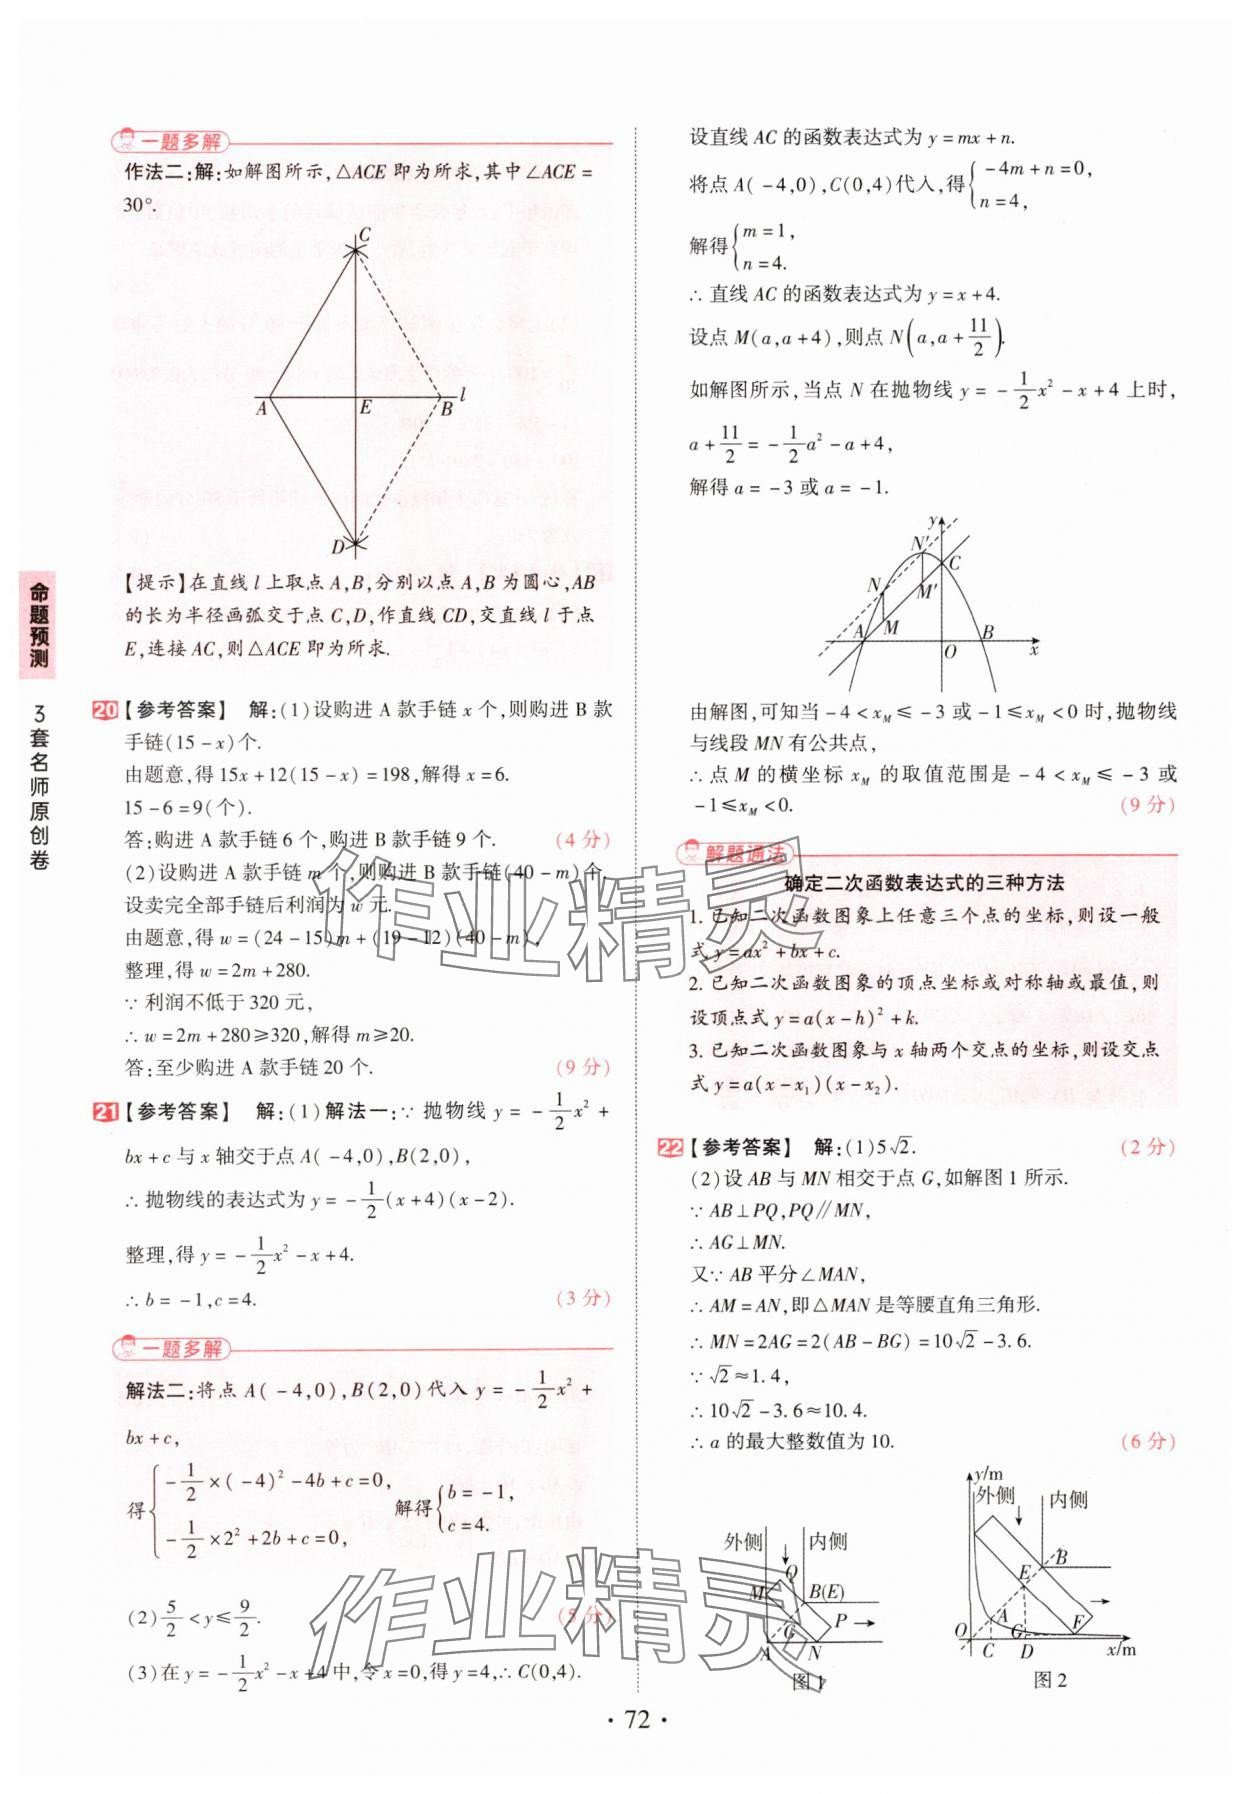 命题预测
3套名师原创卷
一题多解
作法二:解:如解图所示,△ACE 即为所求,其中∠ACE =
30°.
C
A
E
B
l
D
【提示】在直线 l 上取点 A,B,分别以点 A,B 为圆心,AB
的长为半径画弧交于点 C,D,作直线 CD,交直线 l 于点
E,连接 AC,则△ACE 即为所求.
20【参考答案】 解:(1)设购进 A 款手链 x 个,则购进 B 款
手链(15-x)个.
由题意,得 15x+12(15-x)=198,解得 x=6.
15-6=9(个).
答:购进 A 款手链 6 个,购进 B 款手链 9 个. (4 分)
(2)设购进 A 款手链 m 个,则购进 B 款手链(40-m)个.
设卖完全部手链后利润为 w 元.
由题意,得 w=(24-15)m+(19-12)(40-m),
整理,得 w=2m+280.
∵ 利润不低于 320 元,
∴ w=2m+280≥320,解得 m≥20.
答:至少购进 A 款手链 20 个. (9 分)
21【参考答案】 解:(1)解法一:∵ 抛物线 y=-1/2x²+
bx+c 与 x 轴交于点 A(-4,0),B(2,0),
∴ 抛物线的表达式为 y=-1/2(x+4)(x-2).
整理,得 y=-1/2x²-x+4.
∴ b=-1,c=4. (3 分)
一题多解
解法二:将点 A(-4,0),B(2,0)代入 y=-1/2x²+
bx+c,
得{-1/2×(-4)²-4b+c=0, -1/2×2²+2b+c=0, 解得{b=-1, c=4.
(2)5/2<y≤9/2. (5 分)
(3)在 y=-1/2x²-x+4 中,令 x=0,得 y=4,∴ C(0,4).
设直线 AC 的函数表达式为 y=mx+n.
将点 A(-4,0),C(0,4)代入,得{-4m+n=0, n=4,
解得{m=1, n=4.
∴ 直线 AC 的函数表达式为 y=x+4.
设点 M(a,a+4),则点 N(a,a+11/2).
如解图所示,当点 N 在抛物线 y=-1/2x²-x+4 上时,
a+11/2=-1/2a²-a+4,
解得 a=-3 或 a=-1.
y
N′
C
N
M′
A
M
O
B
x
由解图,可知当-4<x_M≤-3 或-1≤x_M<0 时,抛物线
与线段 MN 有公共点,
∴ 点 M 的横坐标 x_M 的取值范围是-4<x_M≤-3 或
-1≤x_M<0. (9 分)
解题通法
确定二次函数表达式的三种方法
1. 已知二次函数图象上任意三个点的坐标,则设一般
式 y=ax²+bx+c.
2. 已知二次函数图象的顶点坐标或对称轴或最值,则
设顶点式 y=a(x-h)²+k.
3. 已知二次函数图象与 x 轴两个交点的坐标,则设交点
式 y=a(x-x₁)(x-x₂).
22【参考答案】 解:(1)5√2. (2 分)
(2)设 AB 与 MN 相交于点 G,如解图 1 所示.
∵ AB⊥PQ,PQ∥MN,
∴ AG⊥MN.
又∵ AB 平分∠MAN,
∴ AM=AN,即△MAN 是等腰直角三角形.
∴ MN=2AG=2(AB-BG)=10√2-3.6.
∵ √2≈1.4,
∴ 10√2-3.6≈10.4.
∴ a 的最大整数值为 10. (6 分)
外侧
内侧
M
Q
B(E)
G
P
A
N
图 1
y/m
外侧
内侧
B
E
A
F
G
O
C
D
x/m
图 2
· 72 ·
作业精灵
作业精灵